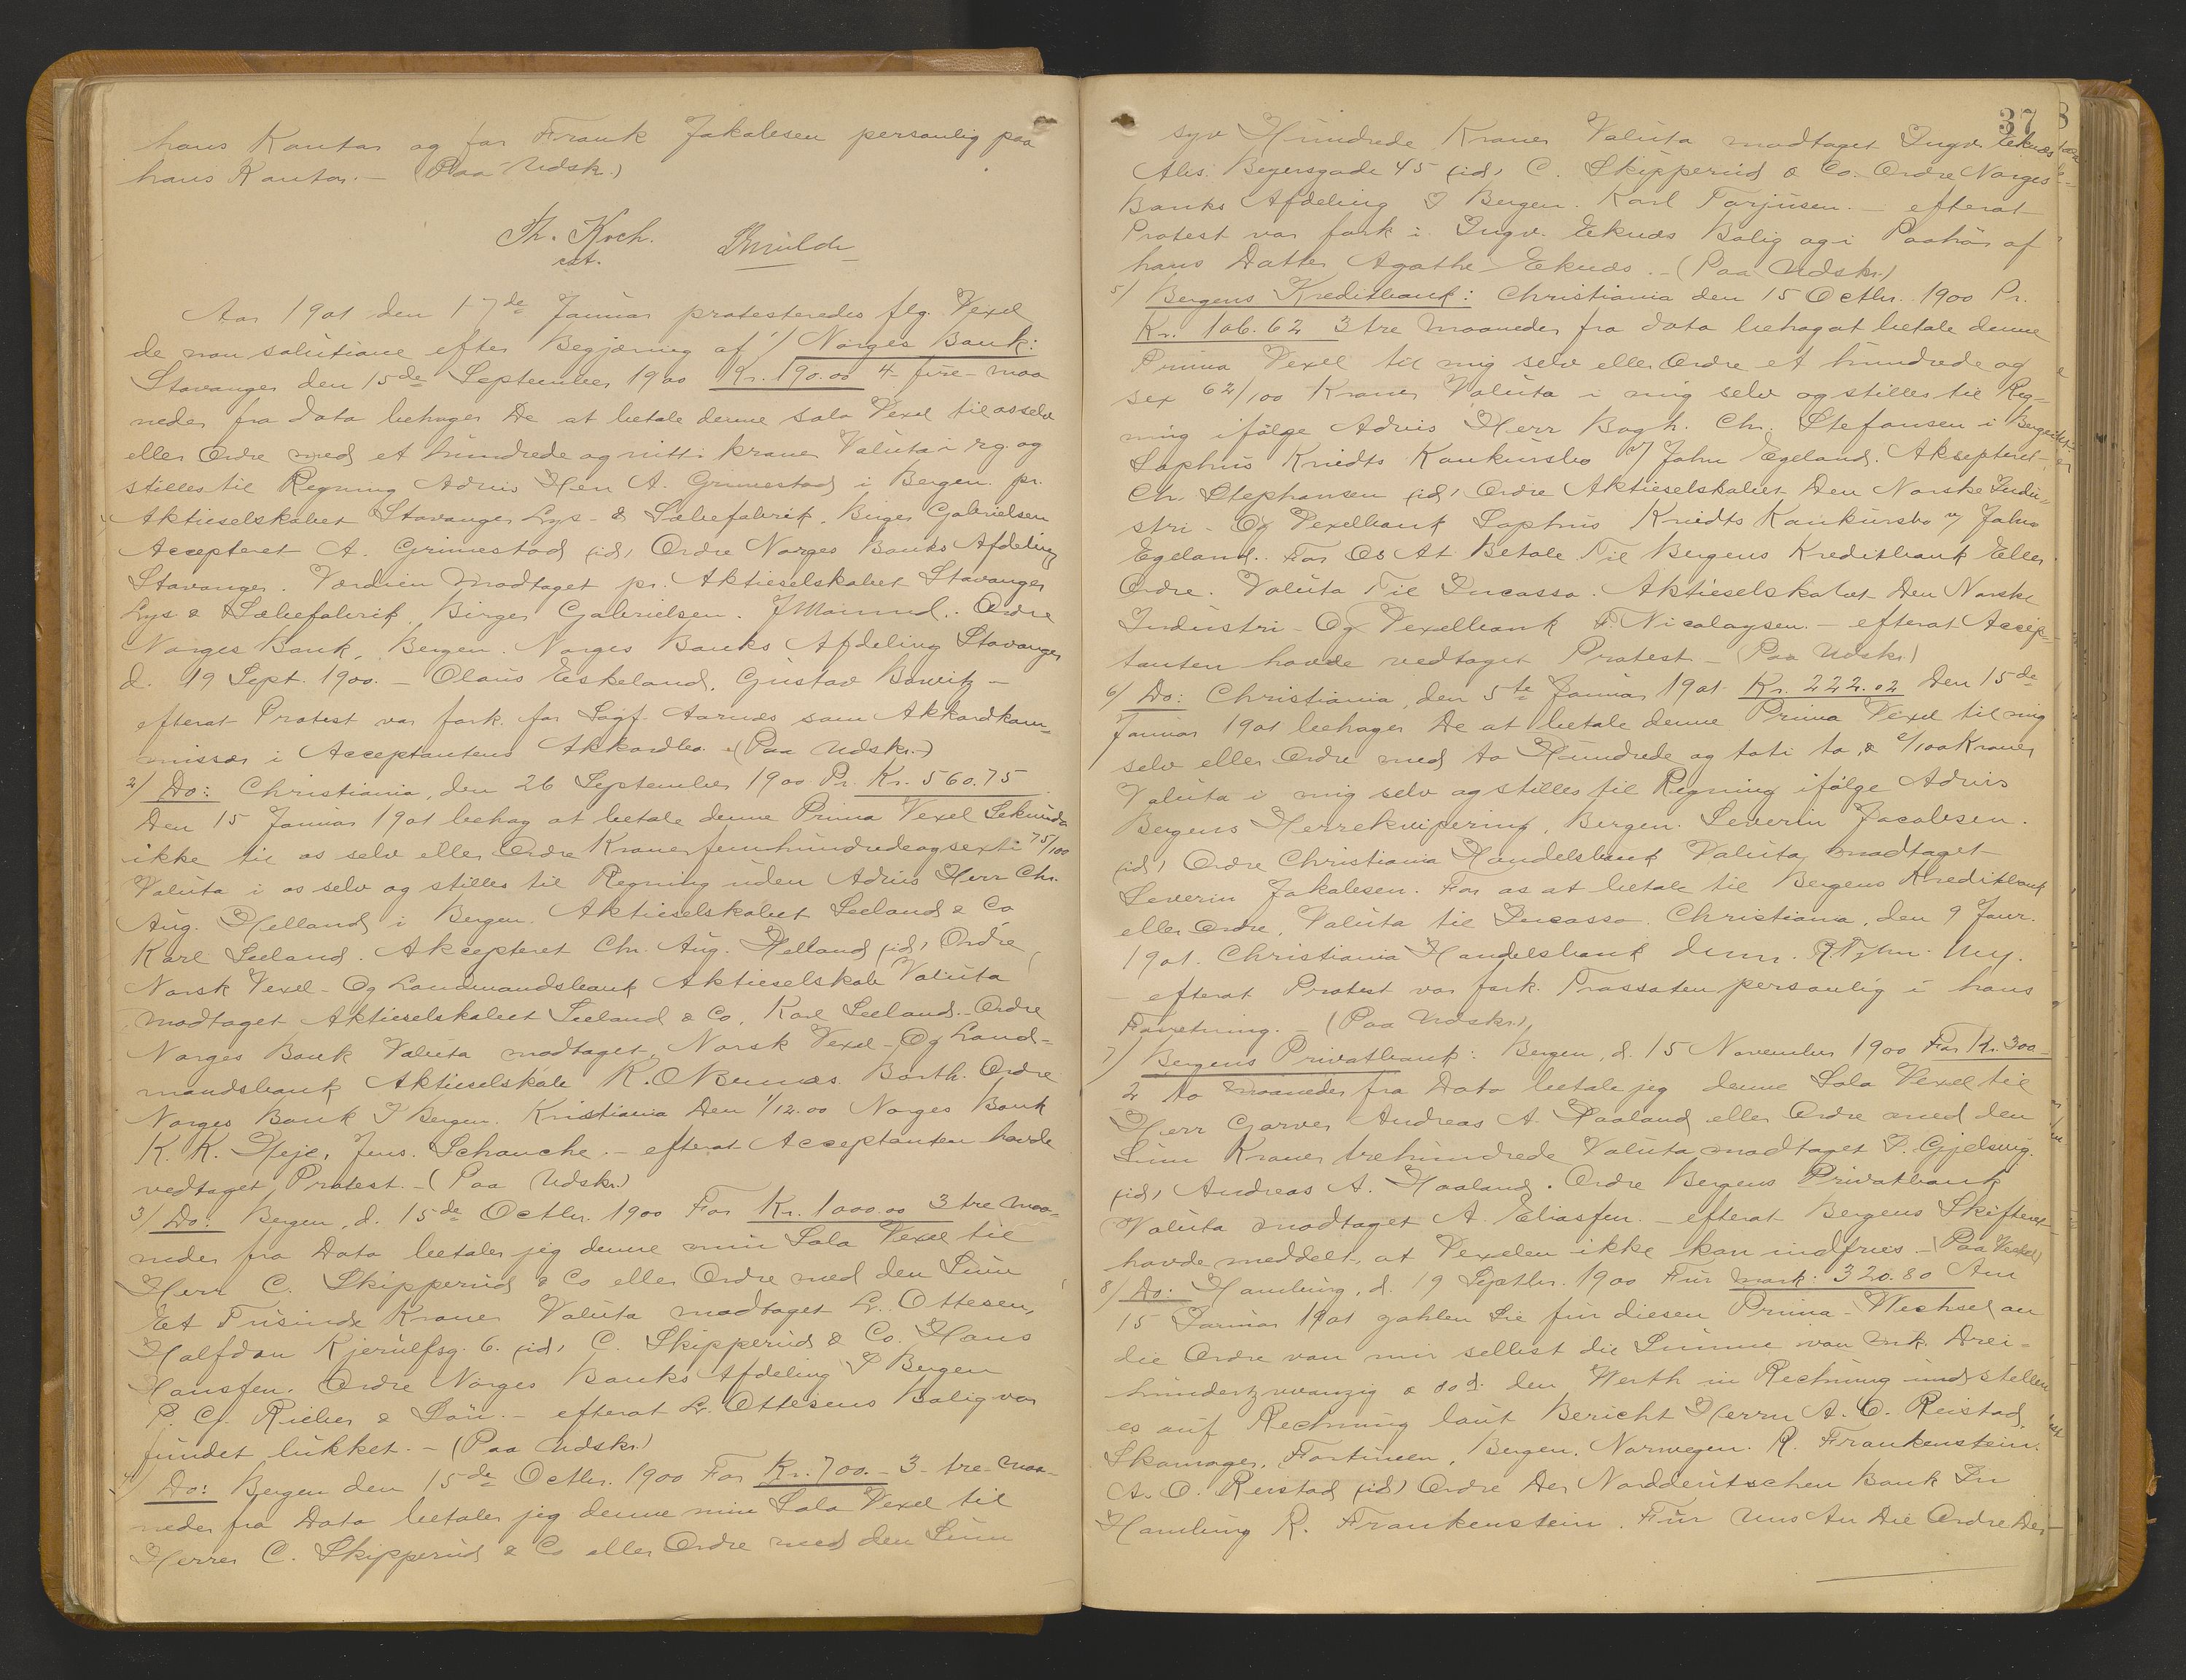 hans Kontor og for Frank Jakobsen personlig paa
hans Kontor. — (Paa Udsk.)
Th. Koch.
cst.
Aar 1901 den 17de Januar protesteredes flg. Vexel
de non solutione efter Begjæring af 1/ Norges Bank:
Stavanger den 15de September 1900 Kr. 190.00 4- fire- maa
neder fra dato behager De at betale denne Sola Vexel til os selv
eller Ordre med et hundrede og nitti kroner Valuta i rg. og
stilles til Regning Advis Herr A. Grimestad i Bergen pr.
Aktieselskabet Stavanger Lys- & Sæbefabrik. Birger Gabrielsen
Accepteret A. Grimestad (id) Ordre Norges Banks Afdeling
Stavanger. Værdien Modtaget pr. Aktieselskabet Stavanger
Lys & Sæbefabrik, Birger Gabrielsen. Ordre
Norges Bank, Bergen. Norges Banks Afdeling Stavanger
d. 19 Sept. 1900. — Olaus Eskeland. Gustav —
efterat Protest var fork. for Sagf. Aarnæs som Akkordkom-
missær i Acceptantens Akkordbo. — (Paa Udskr.)
2/ Do: Christiania, den 26 September 1900 Pr. Kr. 560.75
Den 15 Januar 1901 behag at betale denne Prima Vexel Sekunda
ikke til os selv eller Ordre Kroner femhundredeogsexti 75/100
Valuta i os selv og stilles til Regning uden Advis Herr Chr.
Aug. Helland i Bergen. Aktieselskabet Seeland & Co
Karl Seeland. Akcepteret Chr. Aug. Helland (id) Ordre
Norsk Vexel- Og Landmandsbank Aktieselskab Valuta
modtaget Aktieselskabet Seeland & Co, Karl Seeland. Ordre
Norges Bank Valuta modtaget, Norsk Vexel- Og Land-
mandsbank Aktieselskab K. O Barth. Ordre
Norges Bank I Bergen. Kristiania Den 1/12.00 Norges Bank
K. K. Heje, Jens. Schanche. — efterat Acceptanten havde
vedtaget Protest. — (Paa Udskr.)
3/ Do: Bergen, d. 15de Octbr. 1900 For Kr. 1000.00 3 tre Maa-
neder fra Dato betaler jeg denne min Sola Vexel til
Herr C. Skipperud & Co eller Ordre med den Sum
Et Tusinde Kroner Valuta modtaget L. Ottesen,
Halfdan Kjerulfsg. 6. (id) C. Skipperud & Co. Hans
Hansen. Ordre Norges Banks Afdeling I Bergen
P. G. Rieber & Søn. — efterat L. Ottesens Bolig var
fundet lukket. — (Paa Udskr.)
4/ Do: Bergen den 15de Octbr. 1900 For Kr. 700.- 3- tre Maa-
neder fra Dato betaler jeg denne min Sola Vexel til
Herrer C. Skipperud & Co eller Ordre med den Sum
37
syv Hundrede Kroner Valuta modtaget Ingv. Eknæs
Abs. Beyersgade 45 (id) C. Skipperud & Co. Ordre Norges
Banks Afdeling I Bergen. Karl Torjusen. — efterat
Protest var fork i Ingv. Eknæs Bolig og i Paahør af
hans Datter Agathe Eknæs. — (Paa Udskr.)
5/ Bergens Kreditbank: Christiania den 15 Octbr. 1900 Pr.
Kr. 106.62 3 tre Maaneder fra dato behag at betale denne
Prima Vexel til mig selv eller Ordre et hundrede og
sex 62/100 Kroner Valuta i mig selv og stilles til Reg-
ning ifølge Advis Herr Bogh. Chr. Stefansen i Bergen
Sophus Kriedts Konkursbo v/ John Egeland. Aksepteret
Ch. Stephansen (id) Ordre Aktieselskabet Den Norske Indu-
stri- Og Vexelbank Sophus Kriedts Konkursbo v/ John
Egeland. For Os At Betale Til Bergens Kreditbank Eller
Ordre. Valuta Til Incasso. Aktieselskabet Den Norske
Industri- Og Vexelbank F. Nicolaysen. — efterat Accep-
tanten havde vedtaget Protest — (Paa Udskr.)
6/ Do: Christiania, den 5te Januar 1901 Kr. 222.02 Den 15de
Januar 1901 behager De at betale denne Prima Vexel til mig
selv eller Ordre med to Hundrede og toti to & 2/100 Kroner
Valuta i mig selv og stilles til Regning ifølge Advis
Bergens Herrekvipering, Bergen. Severin Jacobsen.
(id) Ordre Christiania Handelsbank Valuta modtaget
Severin Jakobsen. For os at betale til Bergens Kreditbank
eller Ordre, Valuta til Incasso. Christiania, den 9 Janr.
1901. Christiania Handelsbank
— efterat Protest var fork. Trassaten personlig i hans
Forretning. — (Paa Udskr.)
7/ Bergens Privatbank: Bergen, d. 15 November 1900 For Kr. 300-
2 to Maaneder fra Dato betaler jeg denne Sola Vexel til
Herr Garver Andreas A. Haaland eller Ordre med den
Sum Kroner trehundrede Valuta modtaget P. Gjelsvig.
(id) Andreas A. Haaland. Ordre Bergens Privatbank
Valuta modtaget A. Eliassen. — efterat Bergens Skifteret
havde meddelt, at Vexelen ikke kan indfries. — (Paa Vexel)
8/ Do: Hamburg, d. 19 Septbr. 1900 Für Mark: 320.80 Am
15 Januar 1901 zahlen Sie für diesen Prima-Wechsel an
die Ordre von mir selbst die Summe von Mk. Drei-
hundertzwanzig & 80 d. den Werth in Rechnung und stellen
es auf Rechnung laut Bericht Herrn A. O. Reistad,
Skomager, Fortunen, Bergen. Norwegen. R. Frankenstein.
A. O. Reistad (id) Ordre Der Norddeutschen Bank In
Hamburg R. Frankenstein. Für Uns An Die Ordre Der